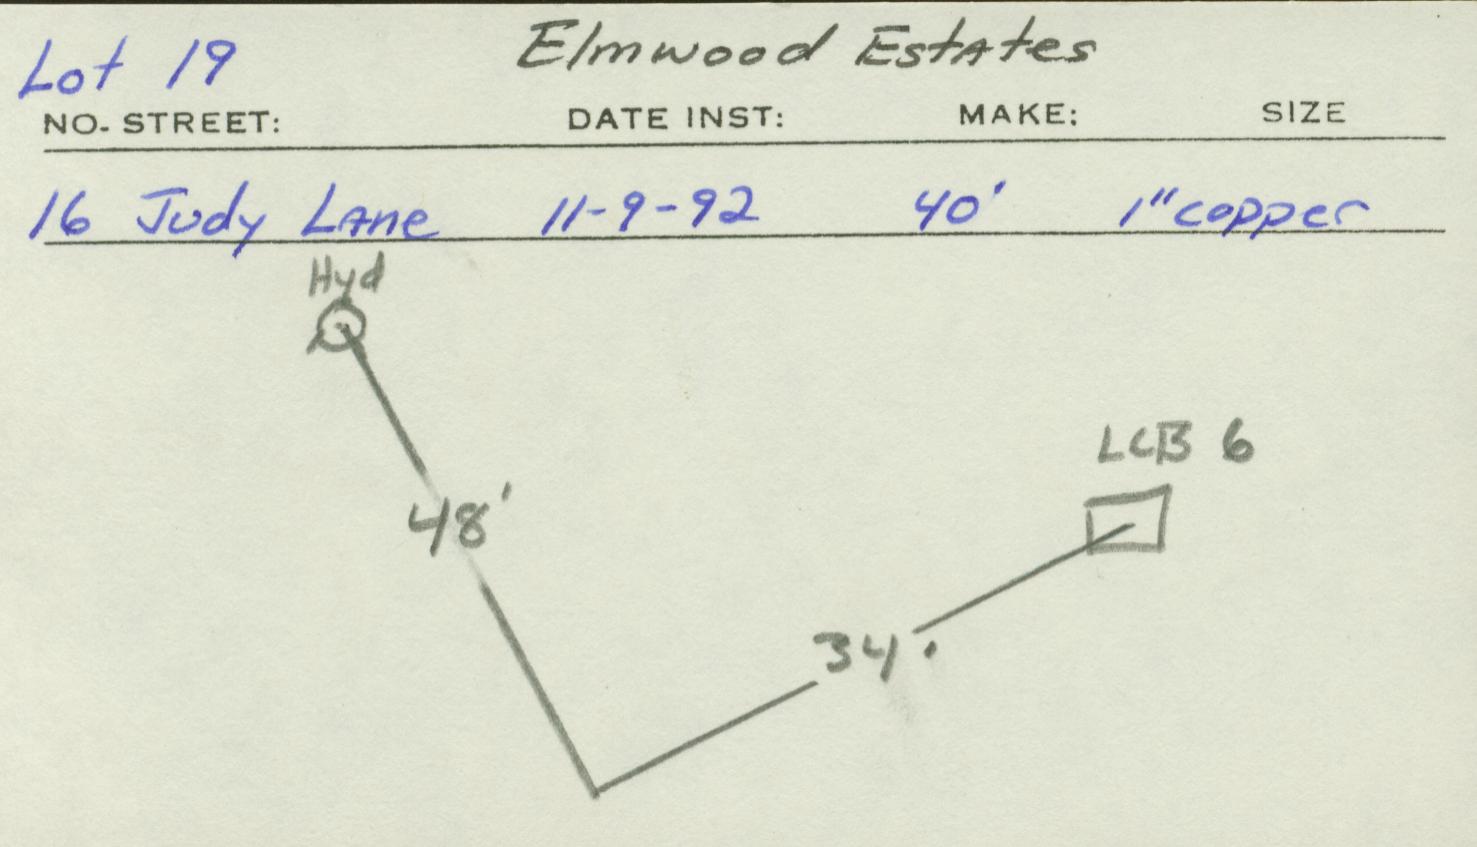 Lot 19 Elmwood Estates
NO. STREET: DATE INST: MAKE: SIZE
16 Judy Lane 11-9-92 40' 1" copper
Hyd
LCB 6
48'
34'